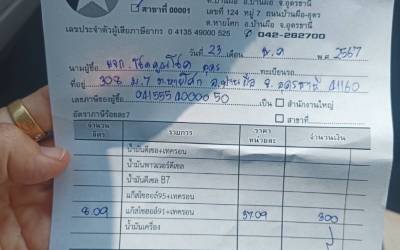 สาขาที่ 00001
เลขที่ 124 หมู่ 7 ถนนบ้านผือ-อุดร
ต.หายโศก อ.บ้านผือ จ.อุดรธานี
เลขประจำตัวผู้เสียภาษีอากร 0 4135 49000 525 042-282700
วันที่ 23 เดือน พ.ศ. 2567
นามผู้ซื้อ หจก. อุดร ทะเบียนรถ
ที่อยู่ 308 ม.7 อ.บ้านผือ จ.อุดรธานี 41160
เลขภาษีของผู้ซื้อ เป็น สำนักงานใหญ่
อัตราภาษีร้อยละ7 สาขาที่
จำนวนลิตร รายการ ราคาหน่วยละ จำนวนเงิน
น้ำมันดีเซล+เทครอน
น้ำมันพาวเวอร์ดีเซล
น้ำมันดีเซล B7
แก๊สโซฮอล์95+เทครอน
8.09 แก๊สโซฮอล์91+เทครอน 37.09 300
น้ำมันเครื่อง